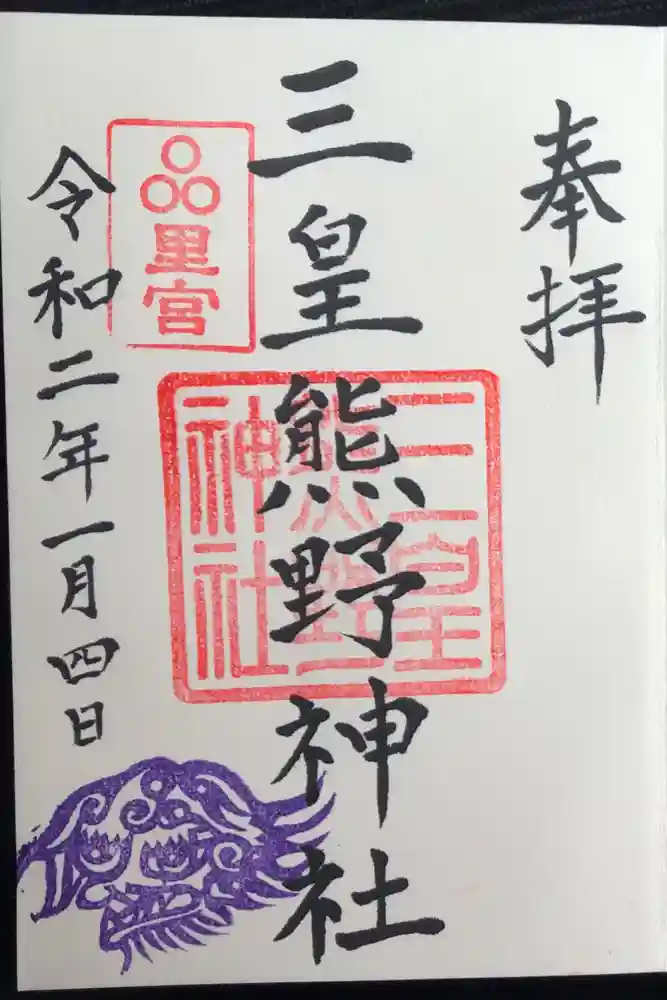 奉拝
三皇熊野神社
三皇熊野神社
里宮
令和二年一月四日